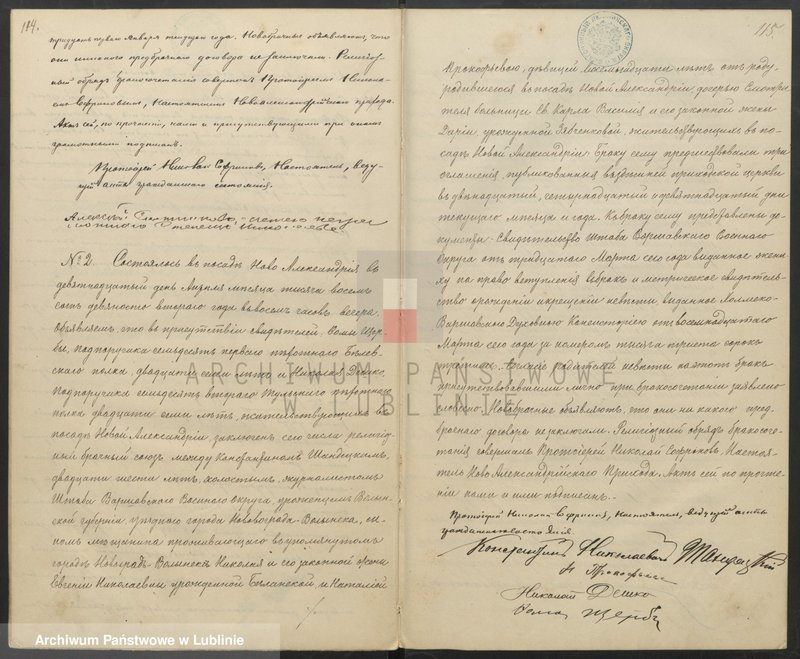 114.
тридцать перваго Января текущаго года. Новобрачные объявляютъ, что
они никакого предбрачнаго договора не заключали. Религіоз-
ный обрядъ бракосочетанія совершенъ Протоіереемъ Никола-
емъ Софроновымъ, Настоятелемъ Новоалександрійскаго прихода.
Актъ сей, по прочтеніи, нами и присутствующими при ономъ
грамотными подписанъ.
Протоіерей Николай Настоятель, веду-
щій акты гражданскаго состоянія.
Алексѣй
№ 2. Состоялось въ посадѣ Ново Александріи въ
девятнадцатый день Апрѣля мѣсяца тысяча восемь
сотъ девяносто втораго года въ восемь часовъ вечера.
Объявляемъ, что въ присутствіи свидѣтелей: Ѳомы Щер-
бы, подпоручика семьдесятъ перваго пѣхотнаго Бѣлев-
скаго полка, двадцати семи лѣтъ и Николая Дешко,
Подпоручика семьдесятъ втораго Тульскаго пѣхотнаго
полка двадцати семи лѣтъ, жительствующихъ въ
посадѣ Новой Александріи, заключенъ сего числа религіоз-
ный брачный союзъ между Константиномъ Шандецкимъ,
двадцати шести лѣтъ, холостымъ, журналистомъ
Штаба Варшавскаго Военнаго Округа, уроженцемъ Волын-
ской губерніи уѣзднаго города Новограда-Волынска, сы-
номъ мѣщанина проживающаго въ упомянутомъ
городѣ Новоградъ-Волынскѣ Николая и его законной жены
Евгеніи Николаевны урожденной Бѣлинской, и Наталіей
115.
Прокофьевою, дѣвицей восемнадцати лѣтъ отъ роду,
родившеюся въ посадѣ Новой Александріи дочерью Смотри-
теля больницы Св. Карла Василія и его законной жены
Даріи урожденной Зябченковой, жительствующихъ въ по-
садѣ Новой Александріи. Браку сему предшествовали три
оглашенія, публикованныя въ здѣшней приходской церкви
въ двѣнадцатый, и девятнадцатый дни
текущаго мѣсяца и года. Къ браку сему представлены до-
кументы: Свидѣтельство Штаба Варшавскаго Военнаго
Округа отъ тридцатаго Марта сего года выданное жени-
ху на право вступленія въ бракъ и метрическое свидѣтель-
ство о рожденіи и крещеніи невѣсты выданное Холмско-
Варшавскою Духовною Консисторіею отъ восемнадцатаго
Марта сего года за номеромъ тысяча триста сорокъ
третьимъ. Согласіе родителей невѣсты на этотъ бракъ
присутствовавшими лично при бракосочетаніи заявлено
словесно. Новобрачные объявляютъ, что они никакого пред-
брачнаго договора не заключали. Религіозный обрядъ бракосоче-
танія совершалъ Протоіерей Николай Софроновъ, Настоя-
тель Ново Александрійскаго Прихода. Актъ сей по прочте-
ніи нами и ими подписанъ.
Протоіерей Николай Софроновъ, Настоятель, ведущій акты
гражданскаго состоянія.
Константинъ Николаевичъ Шандецкій
Н Прокофьева
Николай Дешко
Ѳома Щерба
ARCHIWUM PAŃSTWOWE
W LUBLINIE
Archiwum Państwowe w Lublinie